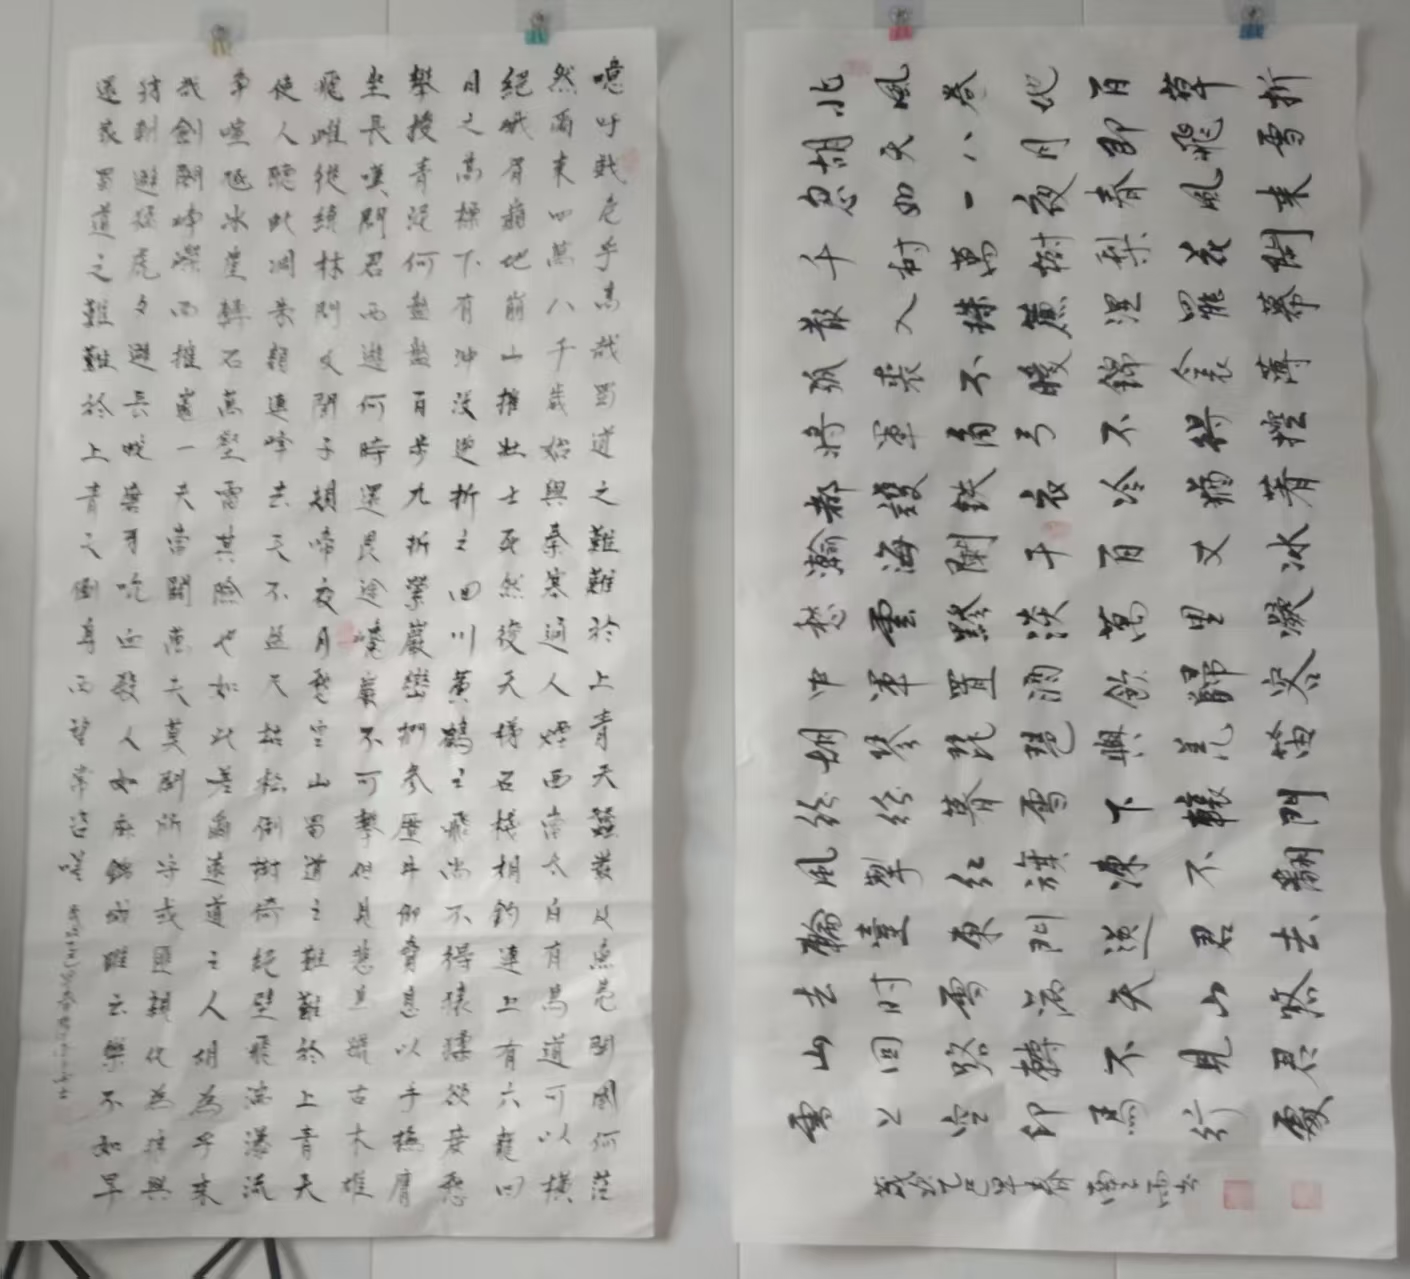 噫吁戲危乎高哉蜀道之難難於上青天蠶叢及魚鳧開國何茫
然爾來四萬八千歲始與秦塞通人煙西當太白有鳥道可以橫
絕峨眉巔地崩山摧壯士死然後天梯石棧相鉤連上有六龍回
日之高標下有沖波逆折之回川黃鶴之飛尚不得猿猱欲度愁
攀援青泥何盤盤百步九折縈巖巒捫參歷井仰脅息以手撫膺
坐長嘆問君西遊何時還畏途巉巖不可攀但見悲鳥號古木雄
飛雌從繞林間又聞子規啼夜月愁空山蜀道之難難於上青天
使人聽此凋朱顏連峰去天不盈尺枯松倒掛倚絕壁飛湍瀑流
爭喧豗冰崖轉石萬壑雷其險也如此嗟爾遠道之人胡為乎來
哉劍閣崢嶸而摧嵬一夫當關萬夫莫開所守或匪親化為狼與
豺朝避猛虎夕避長蛇磨牙吮血殺人如麻錦城雖云樂不如早
還家蜀道之難難於上青天側身西望常咨嗟
北風卷地百草折
胡天八月即飛雪
忽如一夜春風來
千樹萬樹梨花開
散入珠簾濕羅幕
狐裘不暖錦衾薄
將軍角弓不得控
都護鐵衣冷猶著
瀚海闌干百丈冰
愁雲黲淡萬里凝
中軍置酒飲歸客
胡琴琵琶與羌笛
紛紛暮雪下轅門
風掣紅旗凍不翻
輪臺東門送君去
去時雪滿天山路
山回路轉不見君
雪上空印馬行處
歲癸巳早春